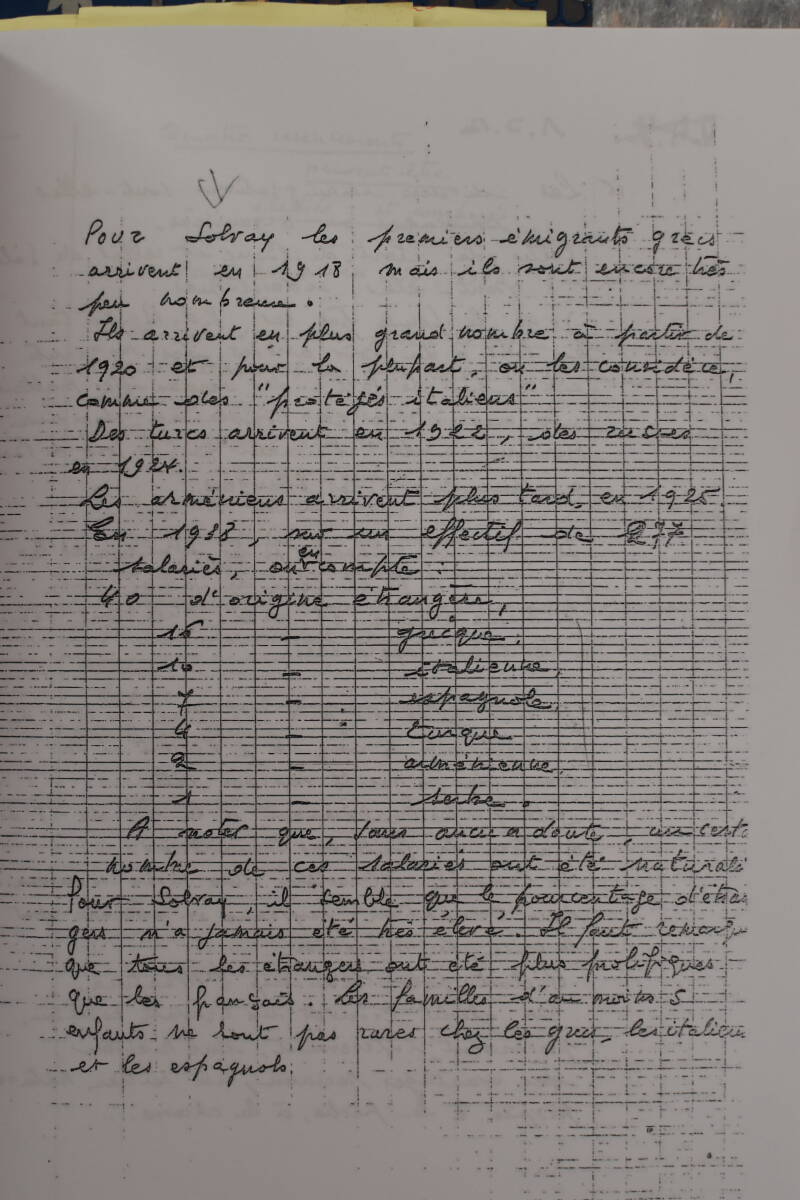 Pour Solvay les premiers émigrants grecs
arrivent en 1918 mais ils sont encore très
peu nombreux.
Ils arrivent en plus grand nombre à partir de
1920 et pour la plupart, on les considère,
comme des "protégés italiens"
Des turcs arrivent en 1922, des russes
en 1924.
Les arméniens arrivent plus tard, en 1925.
En 1938, sur un effectif de 277
salariés, on en compte :
40 d'origine étrangère,
16 — grecque,
10 — italienne,
7 — espagnole,
4 — turque
2 — arménienne,
1 — serbe.
A noter que, sans aucun doute, un cert
nombre de ces salariés ont été naturali
Pour Solvay, il semble que le pourcentage d'étran
gers n'a jamais été très élevé. Il faut remarqu
que tous les étrangers ont été plus prolifiques
que les français. Les familles d'au moins 5
enfants ne sont pas rares chez les grecs, les italien
et les espagnols.